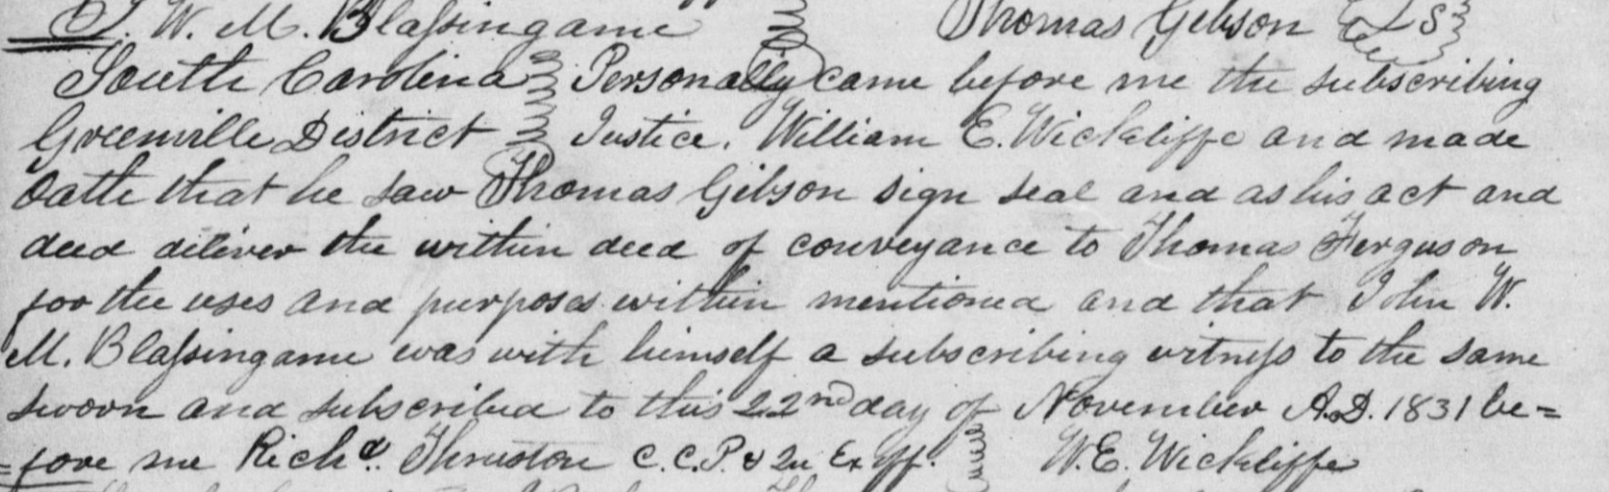 J. W. M. Blassingame Thomas Gibson LS
South Carolina Personally came before me the subscribing
Greenville District Justice. William E. Wickliffe and made
Oath that he saw Thomas Gibson sign seal and as his act and
deed deliver the within deed of conveyance to Thomas Ferguson
for the uses and purposes within mentioned and that John W.
M. Blassingame was with himself a subscribing witness to the same
sworn and subscribed to this 22nd day of November A.D. 1831 be=
=fore me Richd. Thruston C.C.P. & Qu Ex Off. W.E. Wickliffe